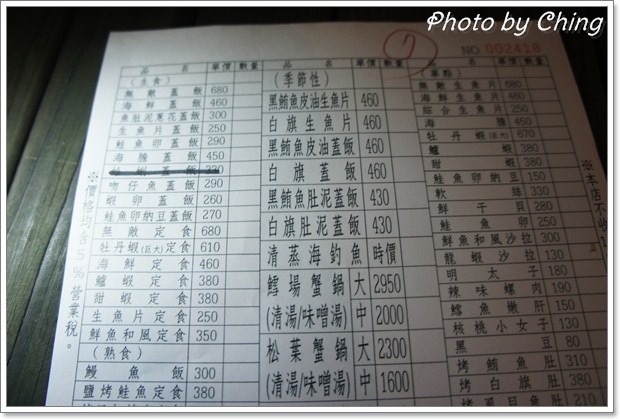 Photo by Ching
NO 002418
品 名 單價 數量
(主食)
無敵蓋飯 680
海鮮蓋飯 460
魚肚泥蔥花蓋飯 300
生魚片蓋飯 250
鮭魚卵蓋飯 290
海膽蓋飯 450
蓋飯
吻仔魚蓋飯 290
蝦卵蓋飯 260
鮭魚卵納豆蓋飯 270
無敵定食 680
牡丹蝦(巨大)定食 610
海鮮定食 460
鱸蝦定食 380
甜蝦定食 380
生魚片定食 250
鮮魚和風定食 350
(熟食)
鰻魚飯 300
鹽烤鮭魚定食 380
品 名 單價 數量
(季節性)
黑鮪魚皮油生魚片 460
白旗生魚片 460
黑鮪魚皮油蓋飯 460
白旗蓋飯 460
黑鮪魚肚泥蓋飯 430
白旗魚肚泥蓋飯 430
清蒸海釣魚 時價
鱈場蟹鍋 大 2950
(清湯/味噌湯) 中 2000
松葉蟹鍋 大 2300
(清湯/味噌湯) 中 1600
品 名 單價 數量
(單點)
無敵生魚片 680
海鮮生魚片 460
綜合生魚片 250
海膽 450
牡丹蝦(巨大) 570
鱸蝦 380
甜蝦 380
鮭魚卵納豆 150
軟絲 330
鮮干貝 280
鮭魚卵 250
鮮魚和風沙拉 300
龍蝦沙拉 130
明太子 180
辣味螺肉 190
鱈魚嫩肝 150
核桃小女子 130
黑豆 80
烤鮪魚肚 310
烤白旗肚 210
※價格均含5%營業稅。
※本店不收